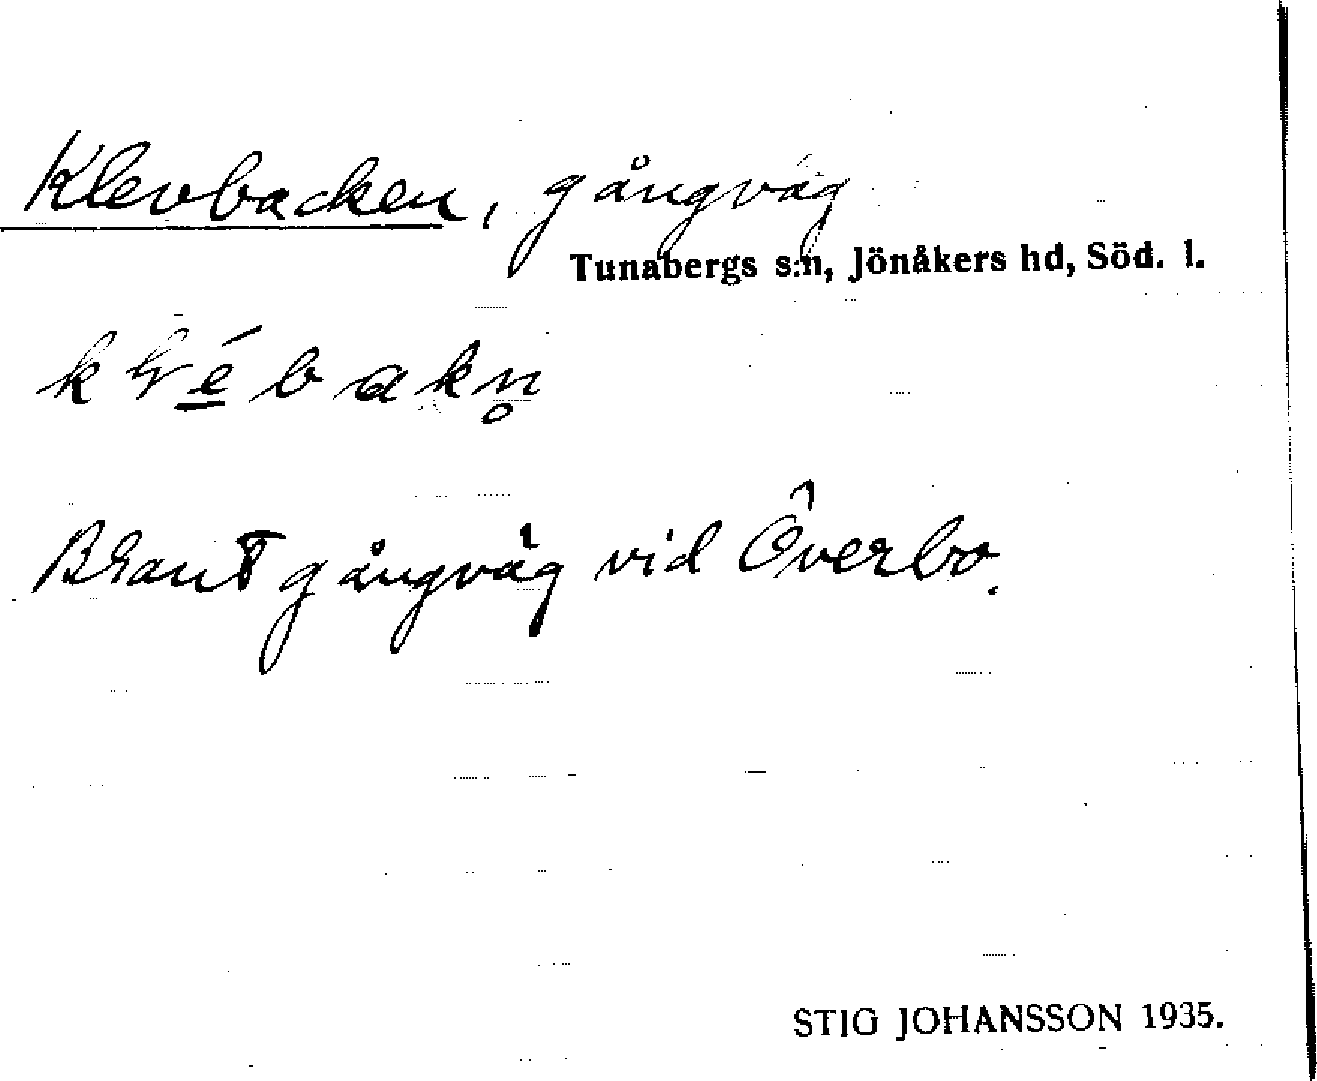 Klevbacken, gångväg
Tunabergs s:n, Jönåkers hd, Söd. l.
Brant gångväg vid Överbo.
STIG JOHANSSON 1935.